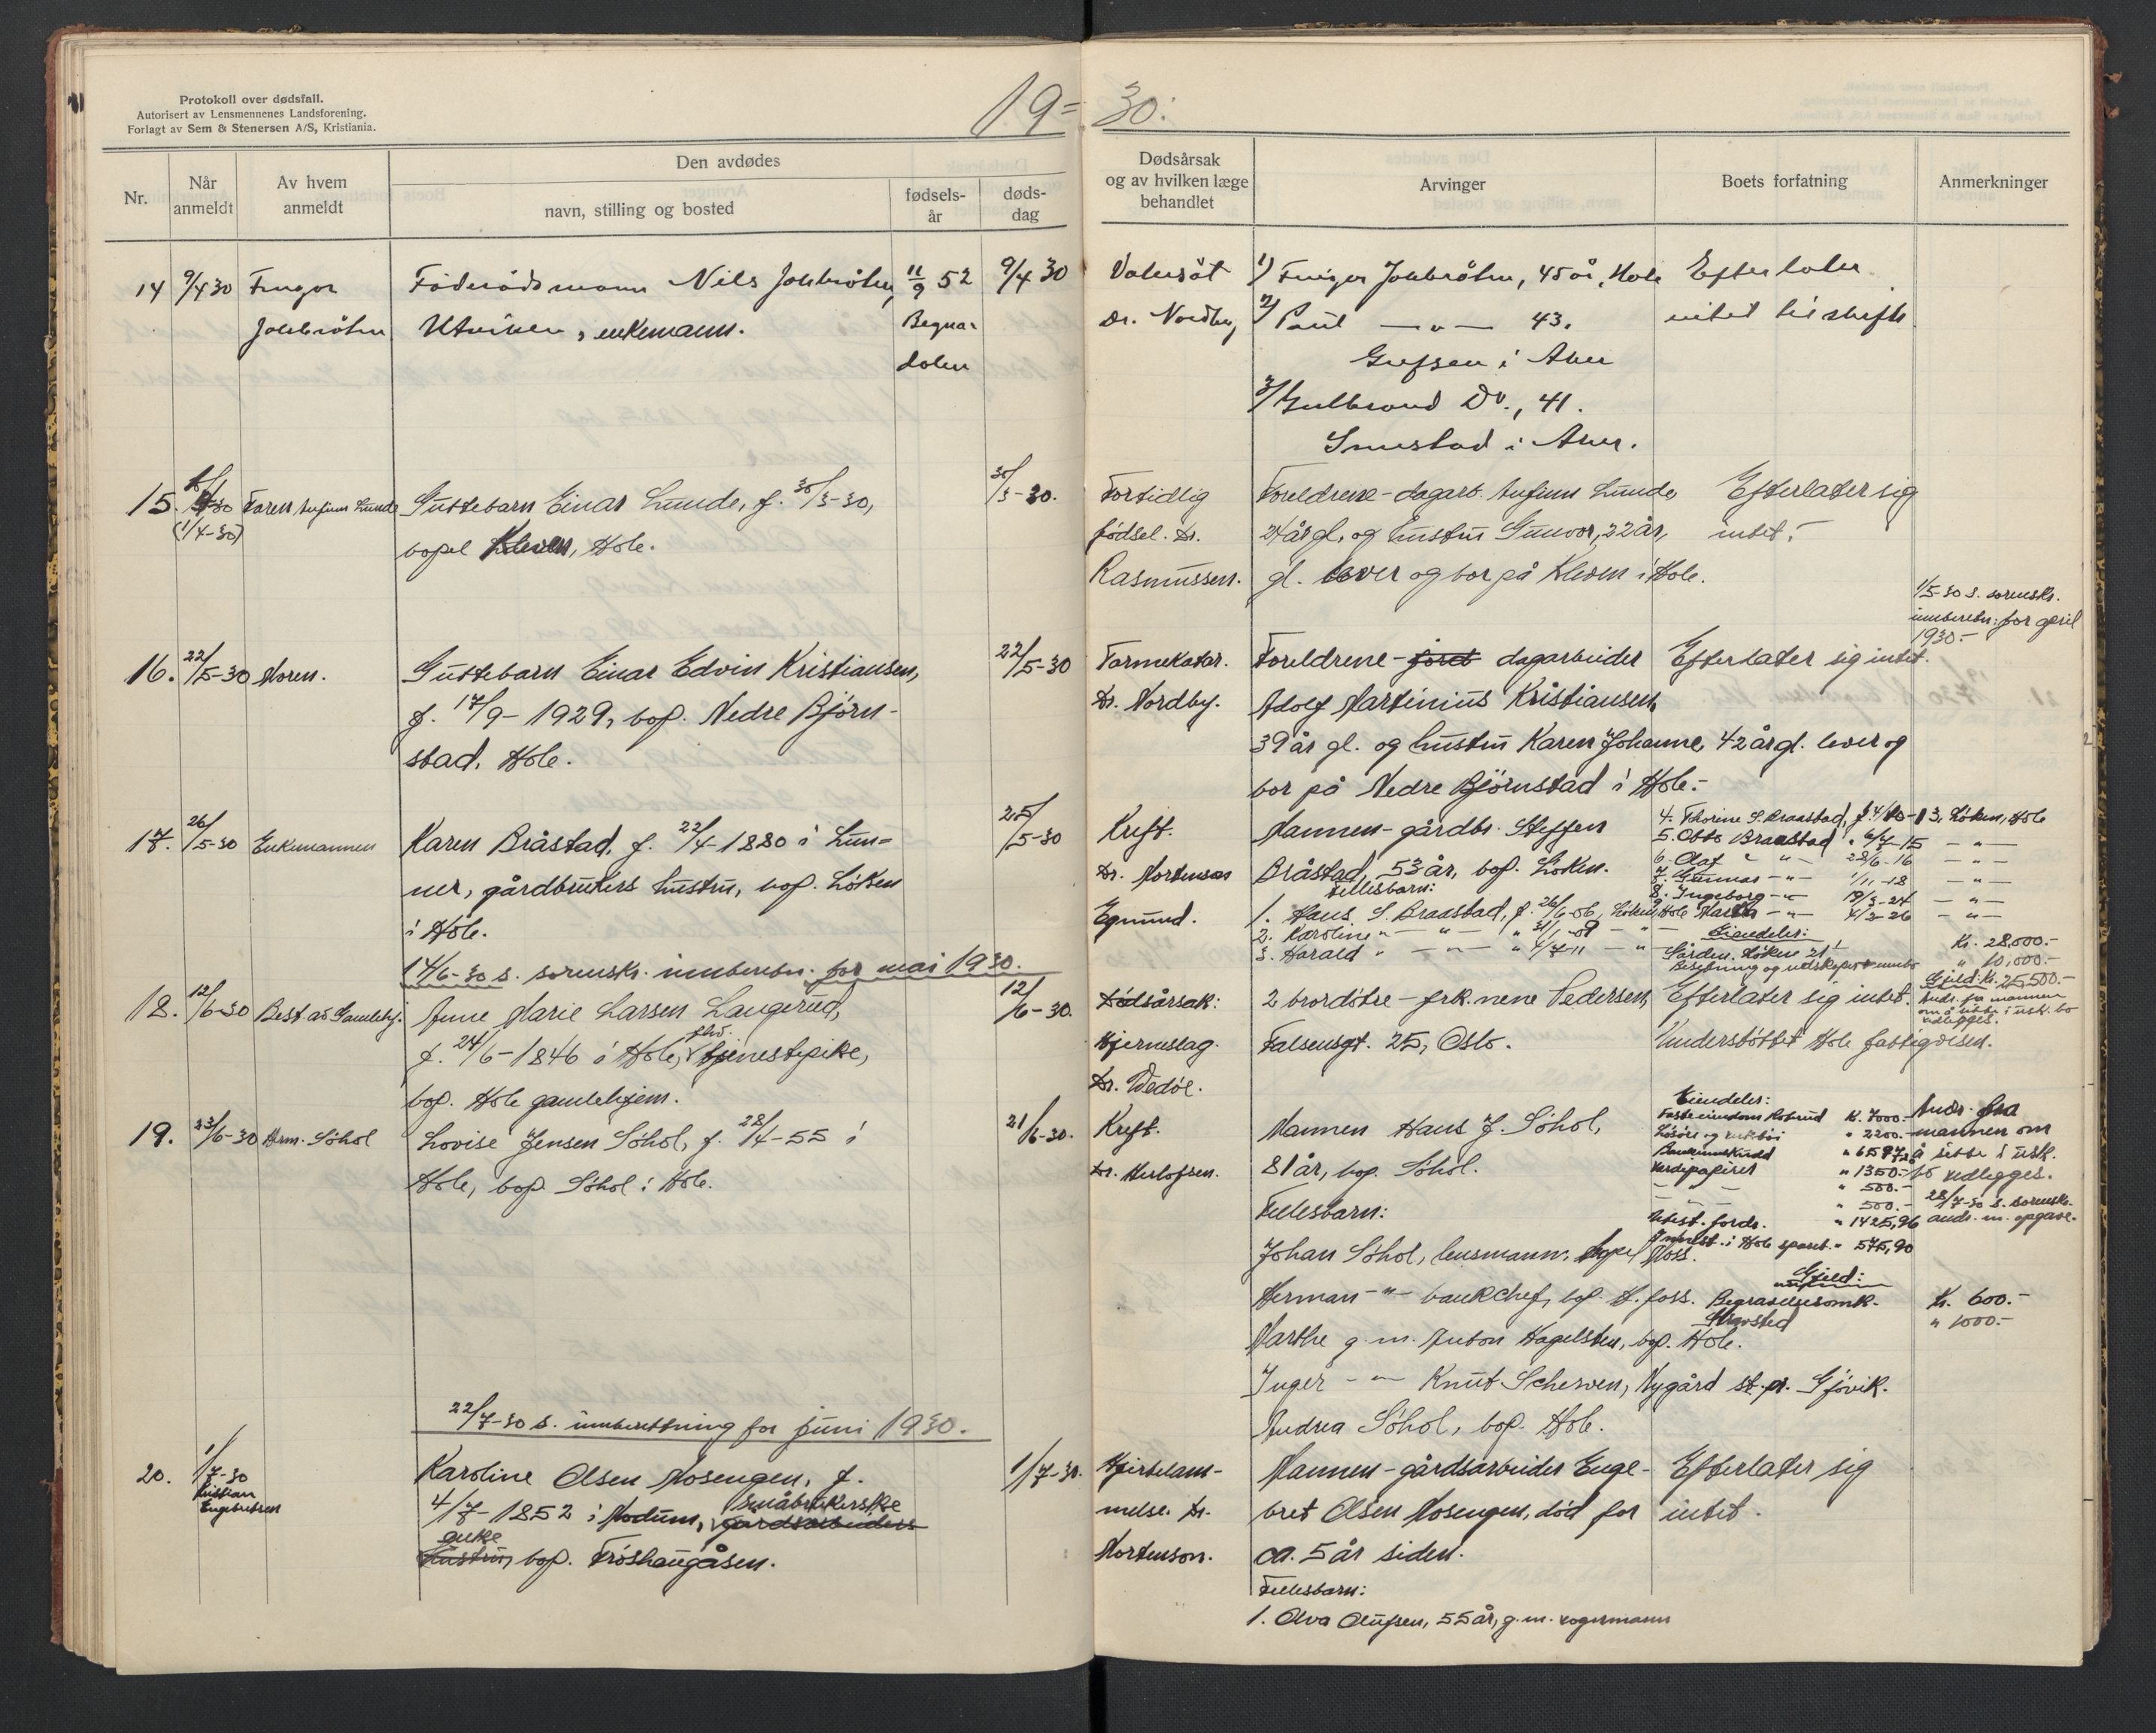 19=30:
Protokoll over dødsfall.
Autorisert av Lensmennenes Landsforening.
Forlagt av Sem & Stenersen A/S, Kristiania.
Nr.
Når anmeldt
Av hvem anmeldt
Den avdødes
navn, stilling og bosted
fødsels-år
døds-dag
Dødsårsak og av hvilken læge behandlet
Arvinger
Boets forfatning
Anmerkninger
14 9/4 30
Føderådsmann Nils
enkemann.
11/9 52
9/4 30
Dr. Nordby
1) 45 år, Hole
2) Paul —"— 43.
Grefsen i Aker
3) Gulbrand Do., 41.
Smestad i Aker.
Efterlater
intet til skifte
15. (1/4-30)
Faren Lunde
Guttebarn Einar Lunde, f. 30/3-30,
bopel Kleven, Hole.
30/3-30.
Fortidlig
fødsel. Dr.
Rasmussen.
Foreldrene - dagarb. Lunde
24 år gl. og hustru Gunvor, 22 år,
gl. lever og bor på Kleven i Hole.
Efterlater sig
intet.-
1/5-30 s. sorenskr.
innberetn: for april
1930.-
16. 22/5-30 Moren.
Guttebarn Einar Edvin Kristiansen,
f. 17/9-1929, bop. Nedre Bjørn-
stad, Hole.
22/5-30
Tarmekatar.
Dr. Nordby.
Foreldrene - dagarbeider
Adolf Martinius Kristiansen,
39 år gl. og hustru Karen Johanne, 42 år gl. lever og
bor på Nedre Bjørnstad i Hole.-
Efterlater sig intet.
17. 26/5-30 Enkemannen
Karen Bråstad, f. 22/4-1880 i Lun=
ner, gårdbrukers hustru, bop. Løken
i Hole.
25/5-30
Kreft.
Dr. Mortenson
Egnund.
Mannen - gårdbr. Steffen
Bråstad, 53 år, bop. Løken.
Fellesbarn:
1. Hans S. Braastad, f. 26/6-06, Løken, Hole
2. Karoline —"— " 31/1-09 —"—
3. Harald " —"— " 4/7-11 —"—
4. Thorine S. Braastad, f. 4/10-13, Løken, Hole
5. Otto Braastad " 6/7-15 —"—
6. Olaf " —"— 28/6-16 —"—
7. Gunnar —"— 1/11-18 —"—
8. Ingeborg —"— 19/3-24 —"—
—"— 4/2-26 —"—
Eiendeler:
Gården Løken 21/1
Kr. 28,000.-
Besetning og redskaper
" 10,000.-
Gjeld: Kr. 25,500.-
Andr. fra mannen
om å sitte i usk. bo
vedlegges.
14/6-30 s. sorenskr. innberetn. for mai 1930.
18. 12/6-30 Best. av Gamlehj.
Anne Marie Larsen Langerud,
f. 24/6-1846 i Hole, fhv. tjenestepike,
bop. Hole gamlehjem.
12/6-30.
Dødsårsak:
Hjerneslag.
Dr. Wedøe.
2 brordøtre - frk.nene Pedersen,
Falsensgt. 25, Oslo.
Efterlater sig intet.
Understøttet Hole fattigvesen.
19. 23/6-30 Herm. Søhol
Lovise Jensen Søhol, f. 28/4-55 i
Hole, bop. Søhol i Hole.
21/6-30.
Kreft.
Dr. Herlofsen.
Mannen Hans J. Søhol,
81 år, bop. Søhol.
Fellesbarn:
Johan Søhol, lensmann, bopel Moss.
Herman —"— bankchef, bop. H.foss.
Marthe g.m. Anton Hagelsten, bop. Hole.
Inger —"— Knut Scherven, Nygård st. pr. Gjøvik.
Andrea Søhol, bop. Hole.
Eiendeler:
Faste eiendom Robrud Kr. 7000.-
Løsøre og " 2200.-
Bankinnskudd
Verdipapirer " 1350.-
—"— " 500.-
—"— " 500.-
Utest. fordr. " 1425,96
Innest. i Hole spareb. " 575,90
Andr. fra
mannen om
å sitte i usk.
bo vedlegges.
28/7-30 s. sorenskr.
andr. m. opgave.
Gjeld:
Begravelsesomk. Kr. 600.-
" 1000.-
22/7-30 s. innberetning for juni 1930.
20. 1/7-30
Kristian
Engebretsen
Karoline Olsen Mosengen, f.
4/7-1852 i Modum, småbrukerske gårdsarbeiders
enke hustru, bop. Frøshaugåsen.
1/7-30.
Hjertelam-
melse. Dr.
Mortenson.
Mannen - gårdsarbeider Enge-
bret Olsen Mosengen, død for
ca. 5 år siden.
Fellesbarn:
1. Olva Olufsen, 55 år, g.m. vognmann
Efterlater sig
intet.